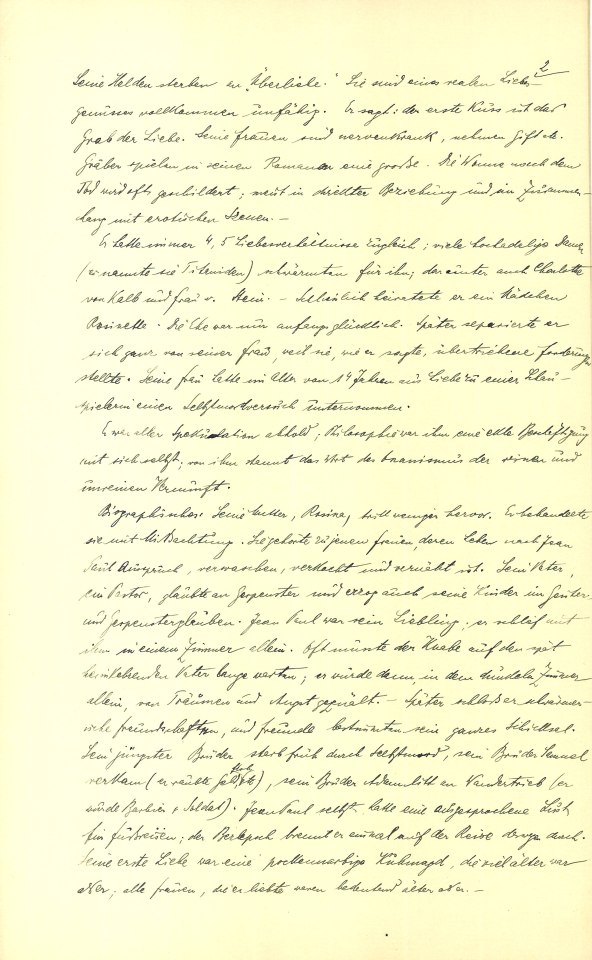 2
Seine Helden sterben an "Überliebe." Sie sind eines realen Liebes-
genusses vollkommen unfähig. Er sagt: der erste Kuss ist das
Grab der Liebe. Seine Frauen sind nervenkrank, nehmen Gift etc.
Gräber spielen in seinen Romanen eine große. Die Wonne nach dem
Tod wird oft geschildert; meist in direkter Beziehung und im Zusammen-
hang mit erotischen Szenen. —
Er hatte immer 4, 5 Liebesverhältnisse zugleich; viele hochadelige Damen
(er nannte sie Titaniden) schwärmten für ihn; darunter auch Charlotte
von Kalb und Frau v. Stein. — Schließlich heiratete er ein Mädchen
Die Ehe war nur anfangs glücklich. Später separierte er
sich ganz von seiner Frau, weil sie, wie er sagte, übertriebene Forderungen
stellte. Seine Frau hatte im Alter von 14 Jahren aus Liebe zu einer Schau-
spielerin einen Selbstmordversuch unternommen.
Er war aller Spekulation abhold; Philosophie war ihm eine ekle Beschäftigung
mit sich selbst; von ihm stammt das Wort des Onanismus der reinen und
unreinen Vernunft.
Biographisches: Seine Mutter, Rosina, tritt weniger hervor. Er behandelte
sie mit Mißachtung. Sie gehörte zu jenen Frauen, deren Leben nach Jean
Paul Ausspruch, verwaschen, verkocht und vernäht ist. Sein Vater,
ein Pastor, glaubte an Gespenster und erzog auch seine Kinder im Geister-
und Gespensterglauben. Jean Paul war sein Liebling; er schlief mit
ihm in einem Zimmer allein. Oft mußte der Knabe auf den spät
heimkehrenden Vater lange warten; er wurde dann, in dem dunkeln Zimmer
allein, von Träumen und Angst gequält. — Später schloß er schwärmer-
ische Freundschaften, und Freunde bestimmten sein ganzes Schicksal.
Sein jüngster Bruder starb früh durch Selbstmord, sein Bruder Samuel
verkam (er raubte Geld), sein Bruder Adam litt an Wandertrieb (er
wurde Barbier + Soldat). Jean Paul selbst hatte eine ausgesprochene Lust
für Fußreisen; der Berlepsch brennt er einmal auf der Reise
Seine erste Liebe war eine pockennarbige Kuhmagd, die viel älter war
als er; alle Frauen, die er liebte waren bedeutend älter als er. —